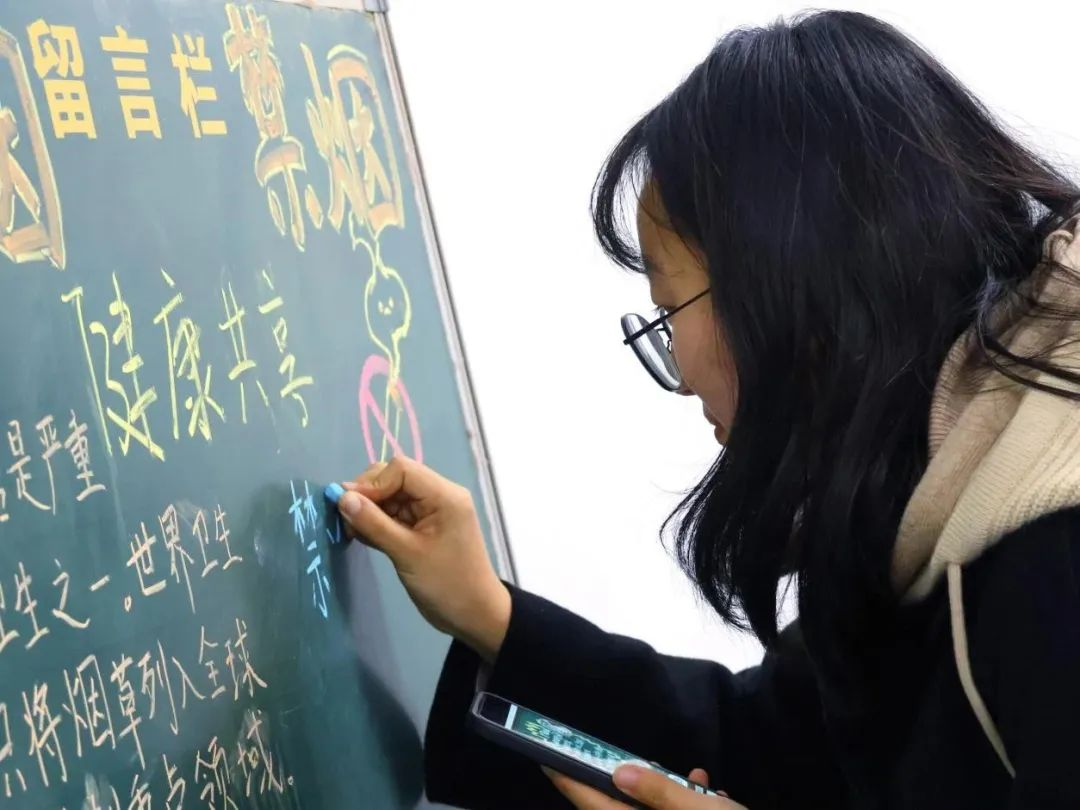 留言栏
禁烟
健康共享
是严重
卫生之一。世界卫生
禁
将烟草列入全球
重点领域。